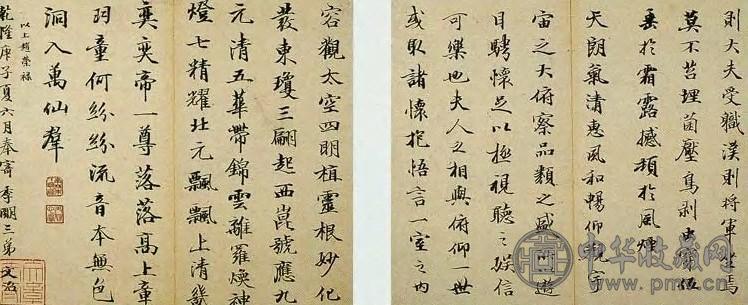 則大夫受職漢則將軍坐焉
莫不苔埋菌壓鳥剝虫穿低
垂於霜露撼頓於風煙
天朗氣清惠風和暢仰觀宇
宙之大俯察品類之盛所遊
目騁懷足以極視聽之娛信
可樂也夫人之相與俯仰一世
或取諸懷抱悟言一室之內
容觀太空四明植靈根妙化
叢東瓊三翮起西崑號應九
元清五華帶錦雲離羅煥神
燈七精耀北元飄飄上清幾
奕奕帝一尊落落高上章
羽童何紛紛流音本無色
洞入萬仙羣
以上趙榮祿
乾隆庚子夏六月奉寄季三弟 文治
中华收藏网